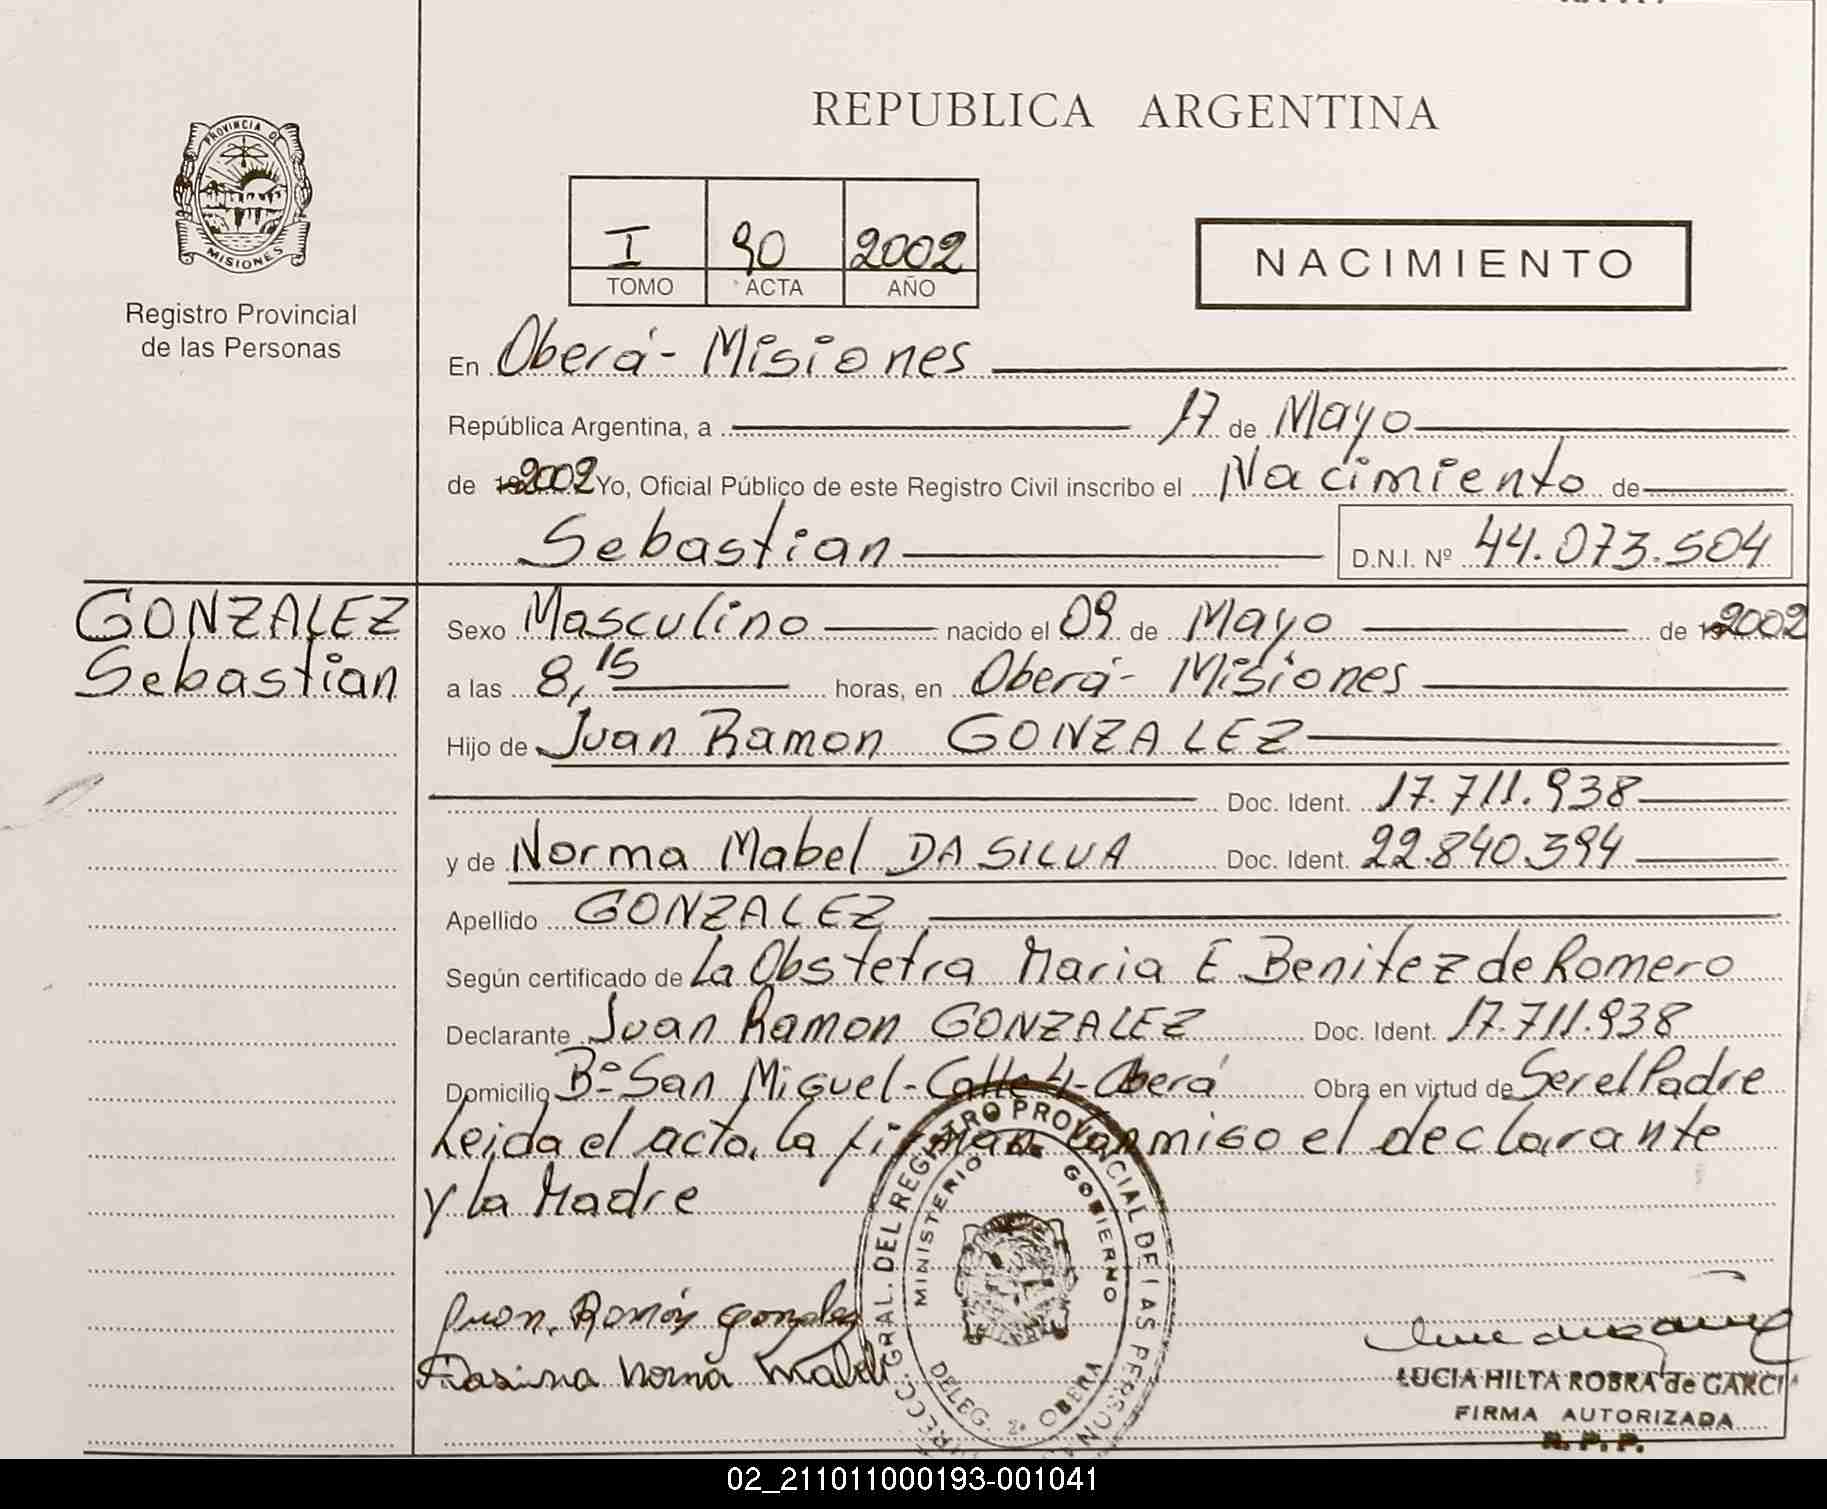 REPUBLICA ARGENTINA
PROVINCIA DE
MISIONES
Registro Provincial
de las Personas
I 90 2002
TOMO ACTA AÑO
NACIMIENTO
En Oberá - Misiones
República Argentina, a 17 de Mayo
de 2002 Yo, Oficial Público de este Registro Civil inscribo el Nacimiento de
Sebastian D.N.I. Nº 44.073.504
GONZALEZ
Sebastian
Sexo Masculino nacido el 09 de Mayo de 2002
a las 8,15 horas, en Oberá - Misiones
Hijo de Juan Ramon GONZALEZ
Doc. Ident. 17.711.938
y de Norma Mabel DA SILVA Doc. Ident. 22.840.394
Apellido GONZALEZ
Según certificado de La Obstetra Maria E Benitez de Romero
Declarante Juan Ramon GONZALEZ Doc. Ident. 17.711.938
Domicilio Bº San Miguel - Calle 4 - Oberá Obra en virtud de Ser el Padre
Leida el acta, la firman conmigo el declarante
y la Madre
DIRECC. GRAL. DEL REGISTRO PROVINCIAL DE LAS PERSONAS
MINISTERIO DE GOBIERNO
DELEG. 2ª OBERA
Juan Ramón Gonzalez
Dasilva Norma Mabel
LUCIA HILTA ROBRA de GARCI
FIRMA AUTORIZADA
R. P. P.
02_211011000193-001041